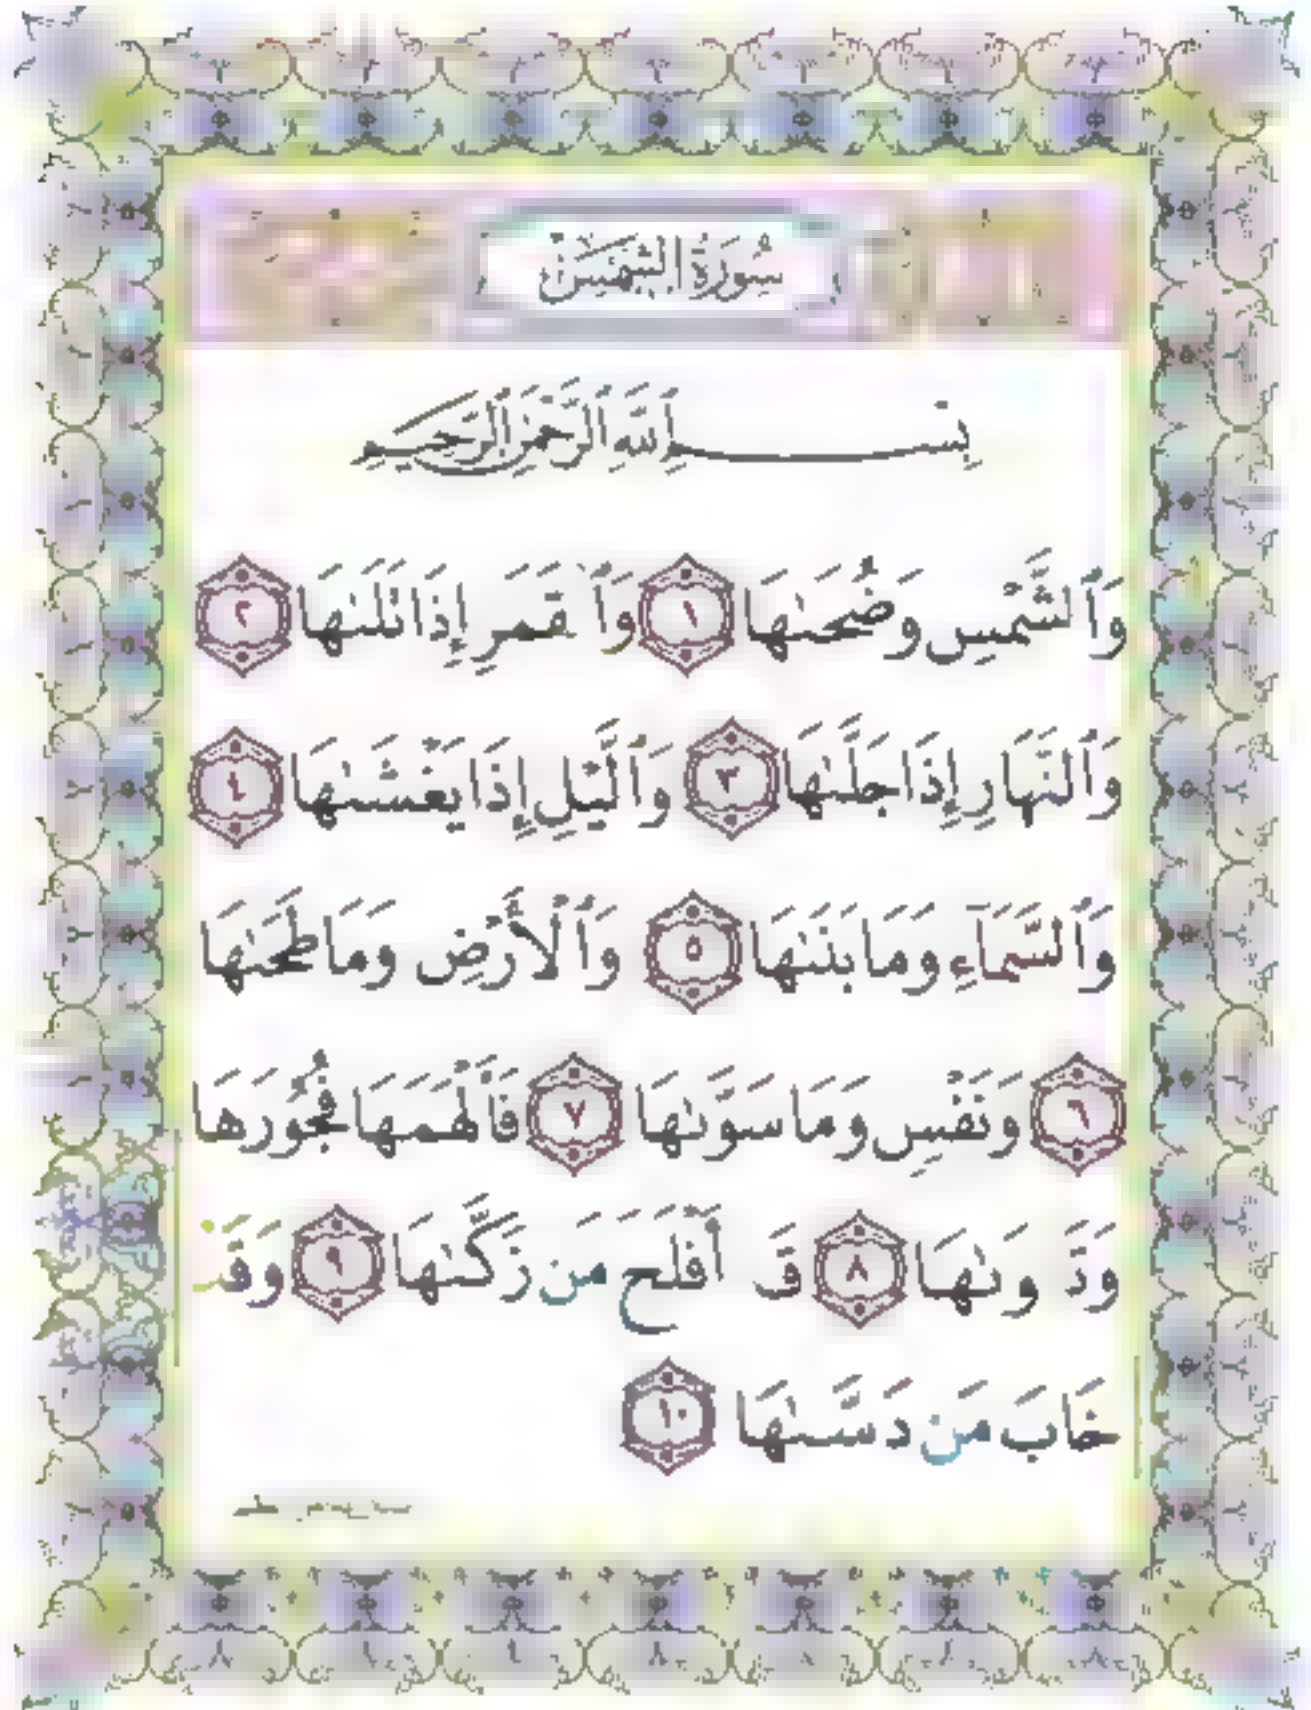 سُورَةُ الشَّمْسِ
بِسْمِ ٱللَّهِ ٱلرَّحْمَٰنِ ٱلرَّحِيمِ
وَٱلشَّمْسِ وَضُحَىٰهَا ١ وَٱ قَمَرِ إِذَا تَلَىٰهَا ٢
وَٱلنَّهَارِ إِذَا جَلَّىٰهَا ٣ وَٱلَّيْلِ إِذَا يَغْشَىٰهَا ٤
وَٱلسَّمَآءِ وَمَا بَنَىٰهَا ٥ وَٱلْأَرْضِ وَمَا طَحَىٰهَا
٦ وَنَفْسٍ وَمَا سَوَّىٰهَا ٧ فَأَلْهَمَهَا فُجُورَهَا
٨ قَ أَفْلَحَ مَن زَكَّىٰهَا ٩ وَقَدْ
خَابَ مَن دَسَّىٰهَا ١٠